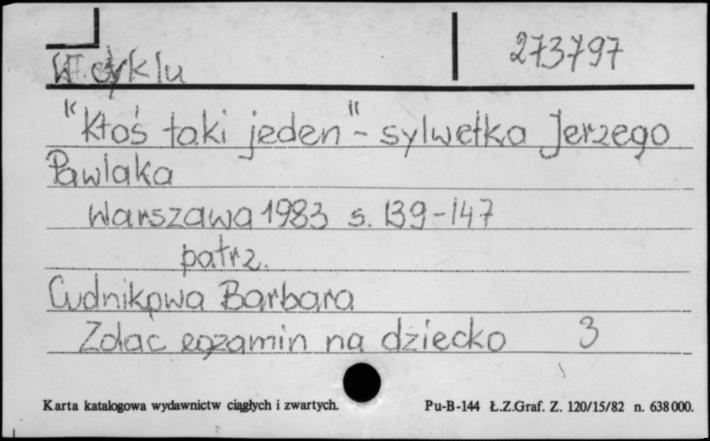 W cyklu
273797
"Ktoś taki jeden" - sylwetka Jerzego
Pawlaka
Warszawa 1983 s. 139-147
patrz.
Cudnikowa Barbara
Zdać egzamin na dziecko 3
Karta katalogowa wydawnictw ciągłych i zwartych.
Pu-B-144 Ł.Z.Graf. Z. 120/15/82 n. 638000.